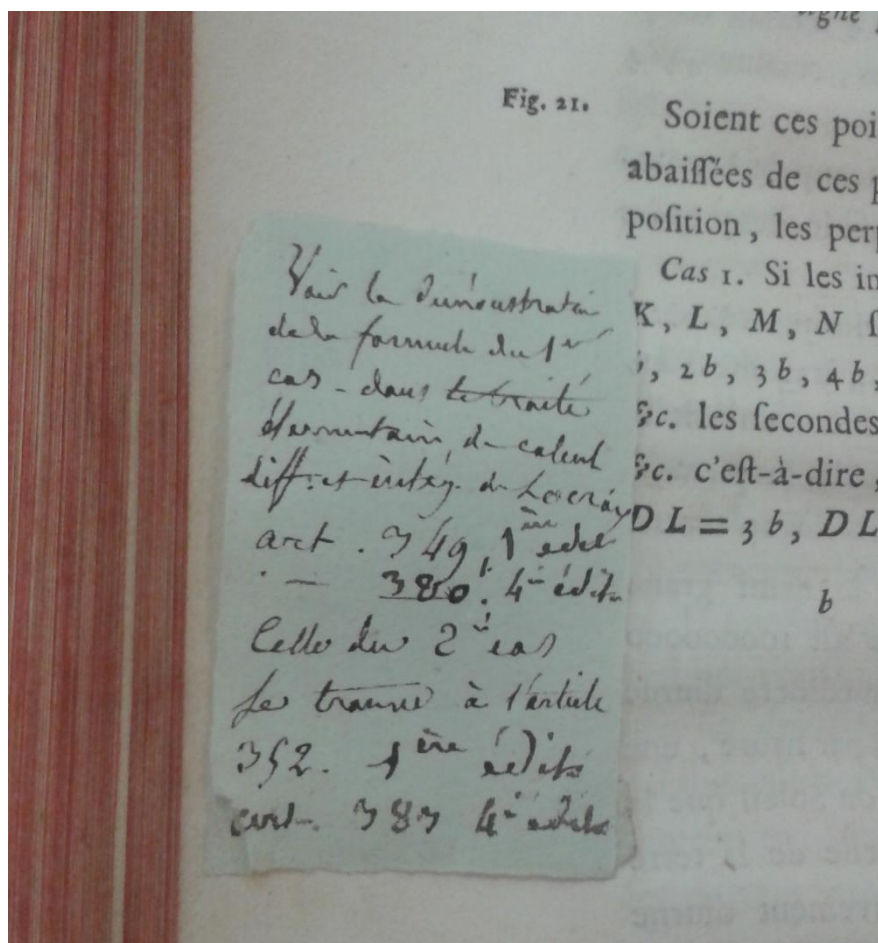 ligne
Fig. 21.
Soient ces poi
abaiſſées de ces p
poſition, les perp
Cas 1. Si les in
K, L, M, N ſ
b, 2b, 3b, 4b,
&c. les ſecondes
&c. c'eſt-à-dire,
DL = 3b, DL
b
Voir la démonstration
de la formule du 1er
cas - dans le traité
élémentaire de calcul
diff. et intég. de Lacroix
art. 349, 1ère édit
- 380. 4e édit.
Celle du 2e cas
se trouve à l'article
352. 1ère édit
art. 383 4e édit